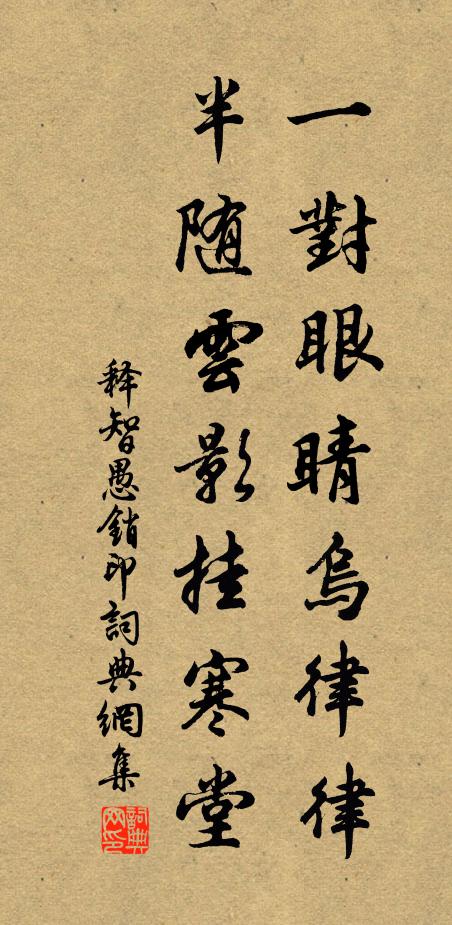 一對眼睛烏律律
半随雲影挂寒堂
释智愚銷印詞典網集
詞典網印